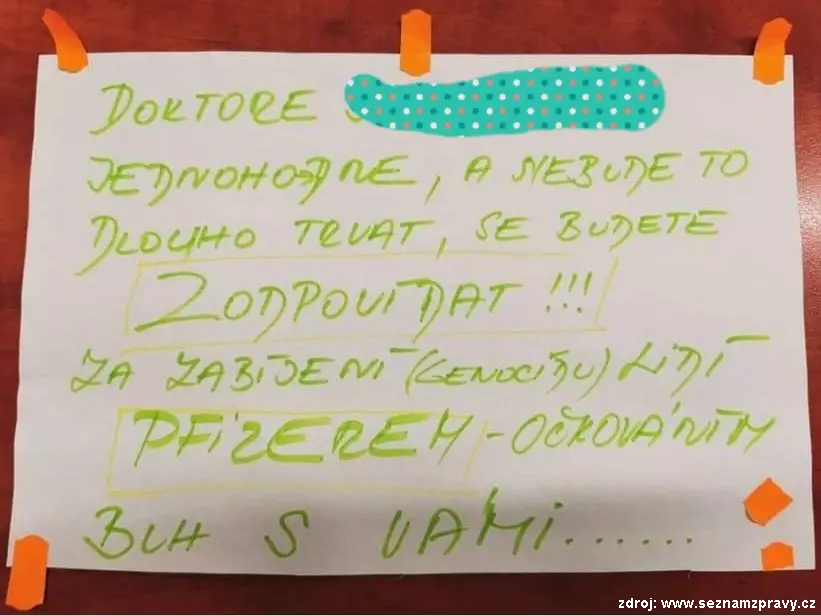 DOKTORE
JEDNOHODNE, A NEBUDE TO
DLOUHO TRVAT, SE BUDETE
ZODPOVÍDAT !!!
ZA ZABÍJENÍ (GENOCIDU) LIDÍ
PFIZEREM - OČKOVÁNÍM
BUH S VÁMI......
zdroj: www.seznamzpravy.cz